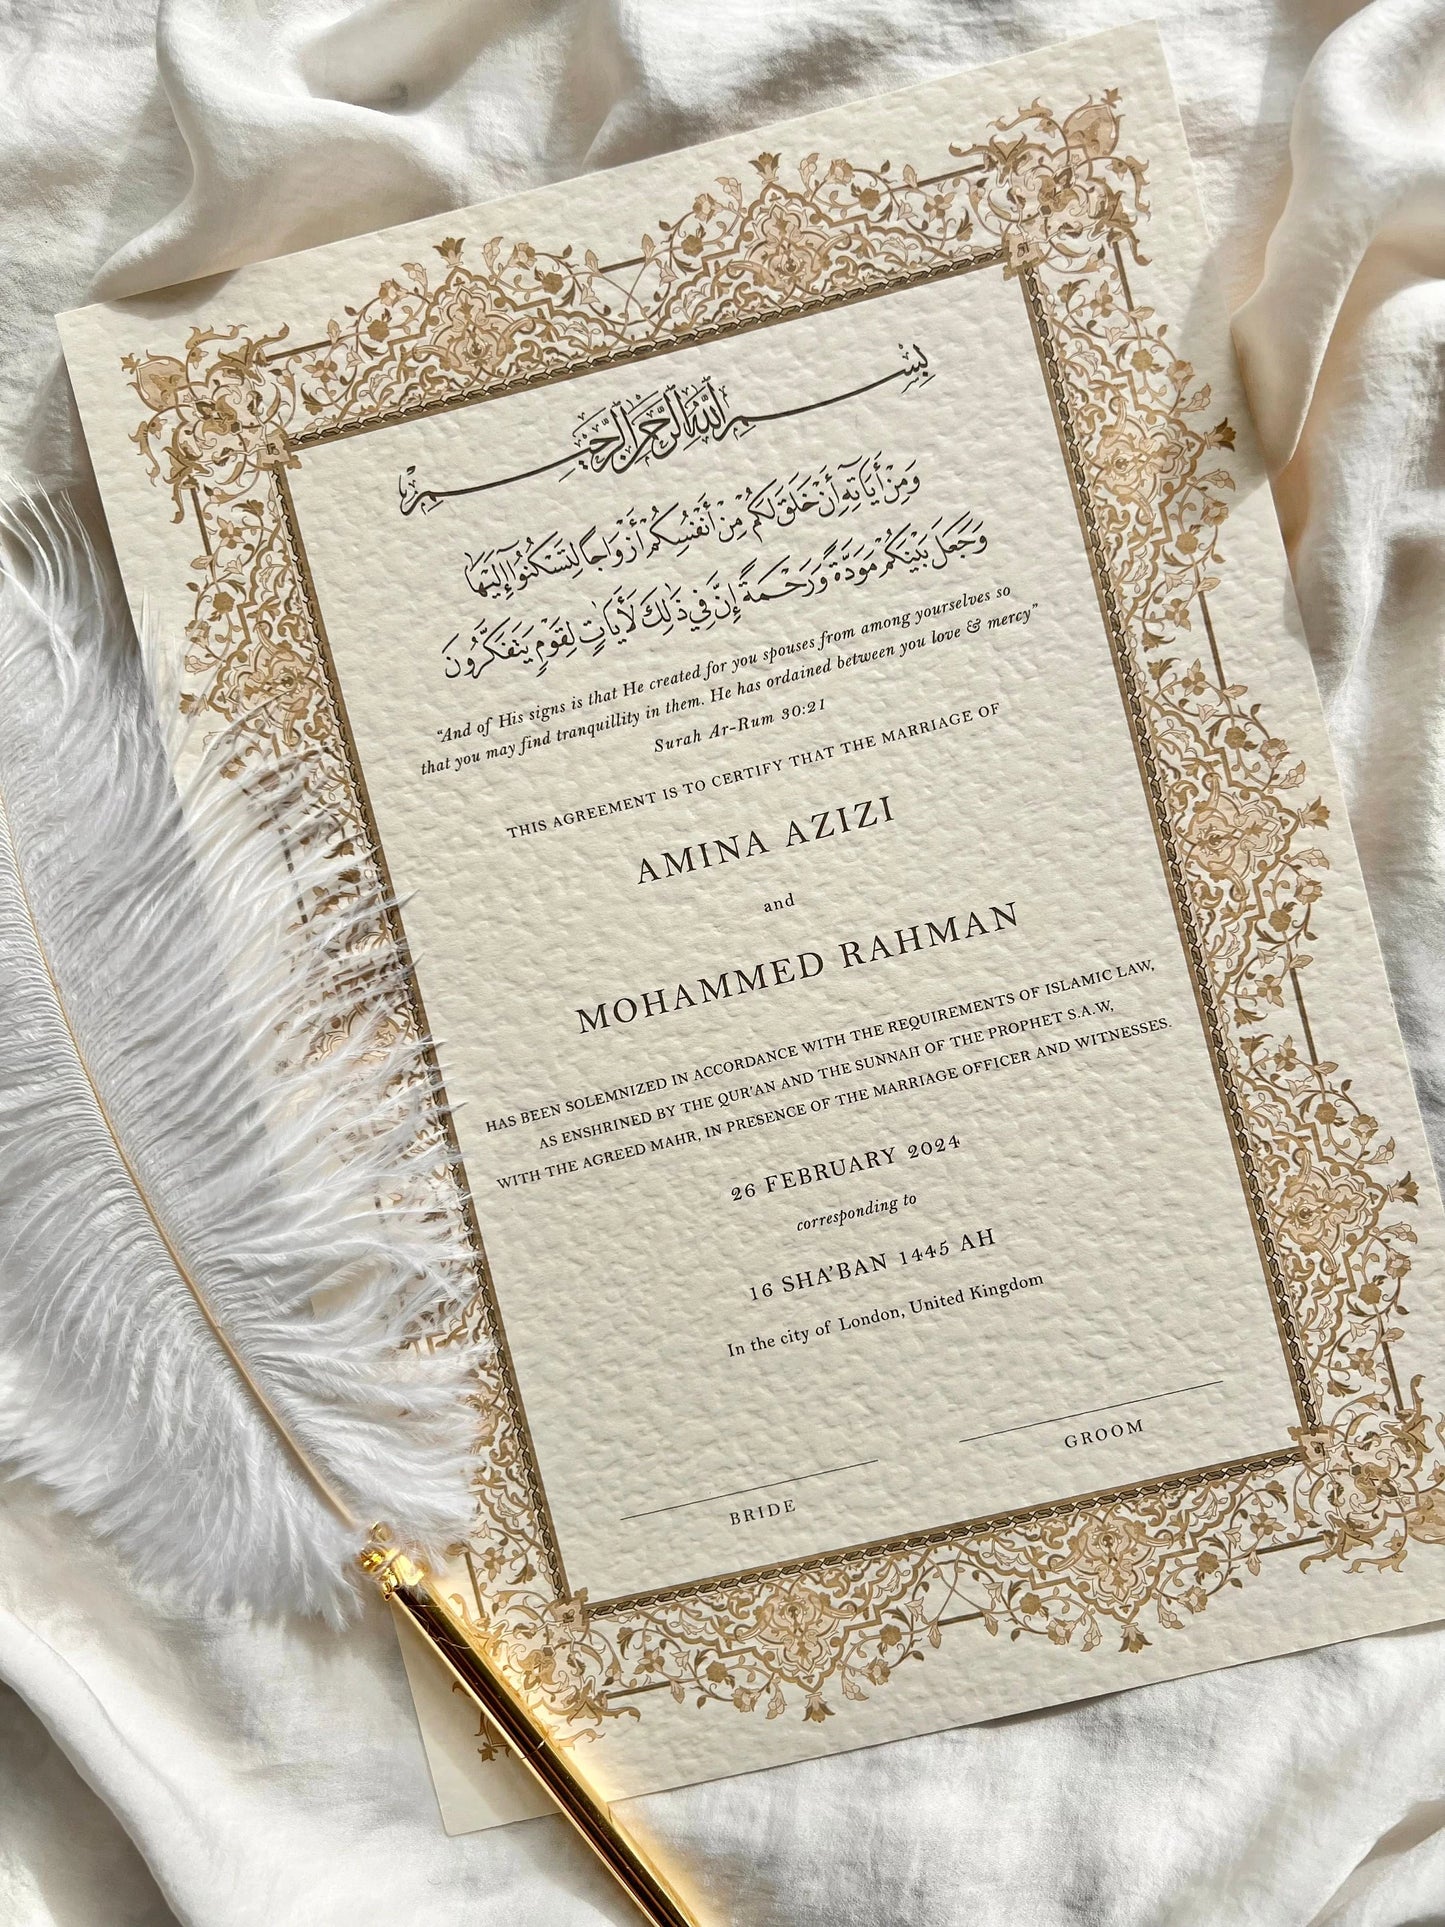 بِسْمِ ٱللَّهِ ٱلرَّحْمَٰنِ ٱلرَّحِيمِ
وَمِنْ أَيَاتِهِ أَنْ خَلَقَ لَكُم مِنْ أَنْفُسِكُمْ أَزْوَاجًا لِتَسْكُنُوا إِلَيْهَا
وَجَعَلَ بَيْنَكُمْ مَوَدَّةً وَرَحْمَةً إِنَّ فِي ذَٰلِكَ لَأَيَاتٍ لِقَوْمٍ يَتَفَكَّرُونَ
“And of His signs is that He created for you spouses from among yourselves so
that you may find tranquillity in them. He has ordained between you love & mercy”
Surah Ar-Rum 30:21
THIS AGREEMENT IS TO CERTIFY THAT THE MARRIAGE OF
AMINA AZIZI
and
MOHAMMED RAHMAN
HAS BEEN SOLEMNIZED IN ACCORDANCE WITH THE REQUIREMENTS OF ISLAMIC LAW,
AS ENSHRINED BY THE QUR'AN AND THE SUNNAH OF THE PROPHET S.A.W,
WITH THE AGREED MAHR, IN PRESENCE OF THE MARRIAGE OFFICER AND WITNESSES.
26 FEBRUARY 2024
corresponding to
16 SHA’BAN 1445 AH
In the city of London, United Kingdom
BRIDE
GROOM